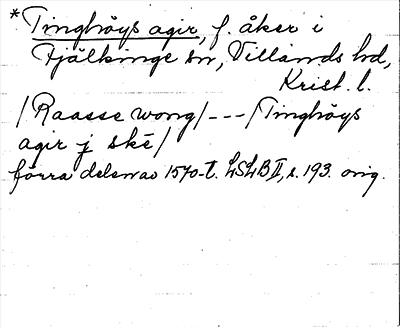 *Tinghöys agir, f. åker i
Fjälkinge sn, Villands hd,
Krist. l.
/Raasse wong/---/Tinghöys
agir j ské/
förra delen av 1570-t. LSLB II, s. 193. orig.